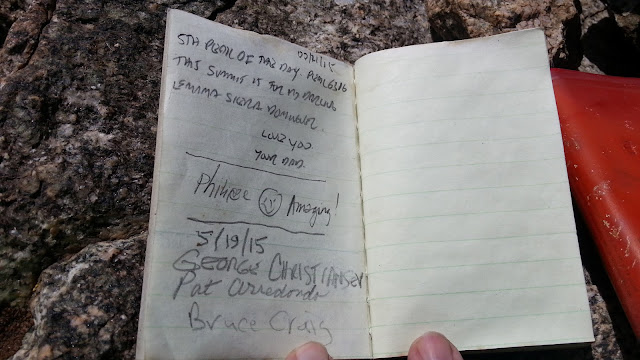 5TH PEAK OF THE DAY. PEAK
THIS SUMMIT IS FOR MY DARLING
SIERRA
LOVE YOU
YOUR DAD.
Amazing!
5/19/15
GEORGE CHRISTIANSEN
Pat Arredondo
Bruce Craig